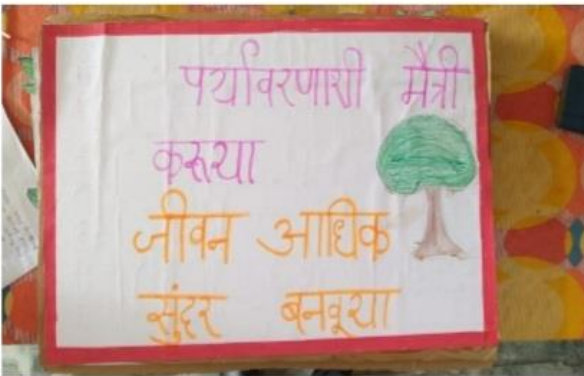 पर्यावरणाशी मैत्री
करूया
जीवन आधिक
सुंदर बनवूया